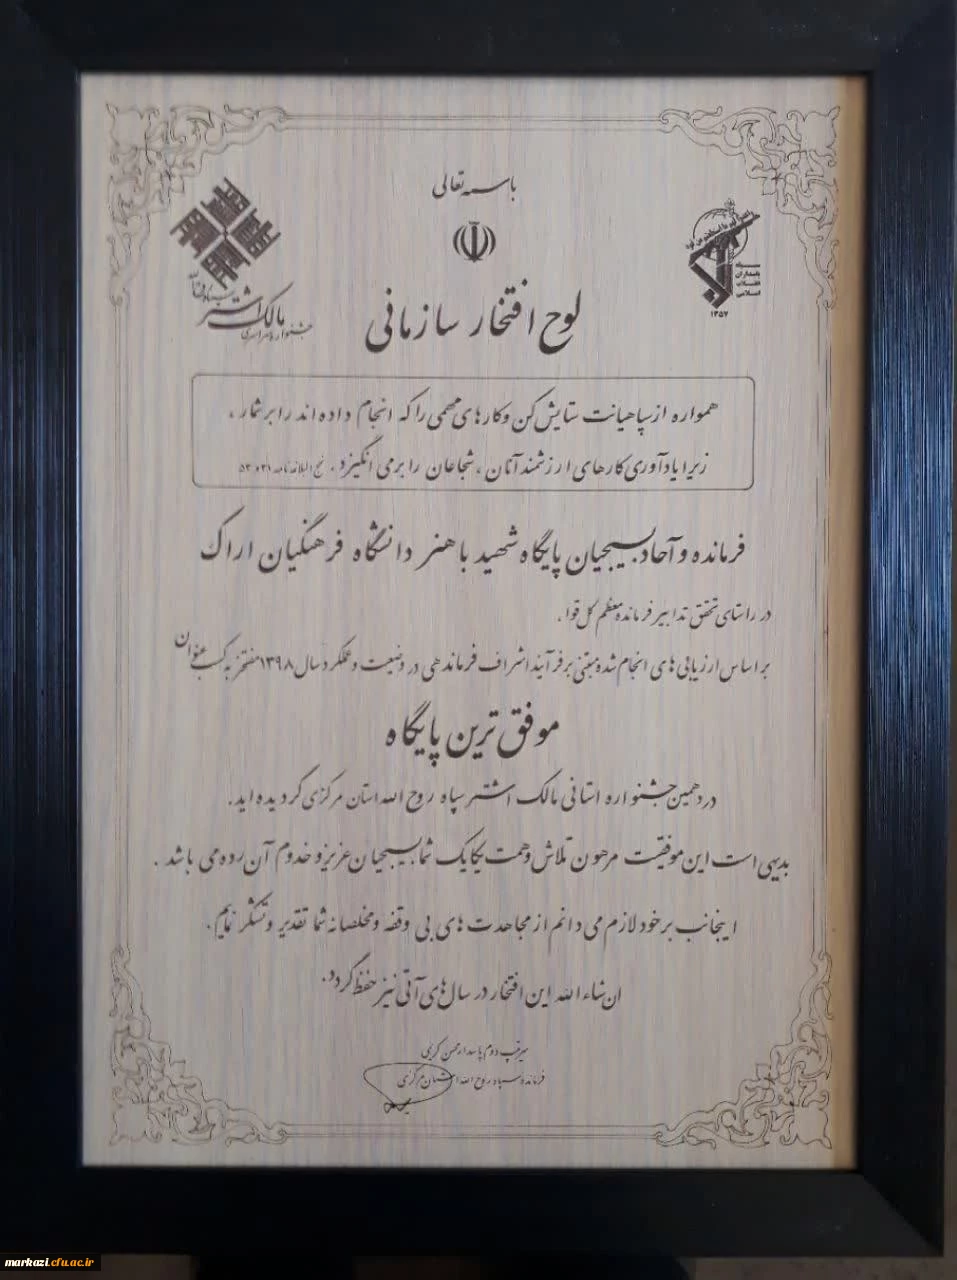 باسمه تعالی
سپاه
پاسداران
انقلاب
اسلامی
۱۳۵۷
جشنواره سراسری
مالک اشتر
لوح افتخار سازمانی
همواره از سپاهیانت ستایش کن و کارهای مهمی را که انجام داده‌اند را برشمار،
زیرا یادآوری کارهای ارزشمند آنان، شجاعان را برمی انگیزد. نهج البلاغه نامه
فرمانده و آحاد بسیجیان پایگاه شهید باهنر دانشگاه فرهنگیان اراک
در راستای تحقق تدابیر فرمانده معظم کل قوا،
بر اساس ارزیابی‌های انجام شده مبتنی بر فرآیند اشراف فرماندهی در وضعیت و عملکرد سال ۱۳۹۸ مفتخر به کسب عنوان
موفق ترین پایگاه
در دهمین جشنواره استانی مالک اشتر سپاه روح الله استان مرکزی گردیده اید.
بدیهی است این موفقیت مرهون تلاش و همت یکایک شما بسیجیان عزیز و خدوم آن رده می باشد.
اینجانب بر خود لازم می دانم از مجاهدت های بی وقفه و مخلصانه شما تقدیر و تشکر نمایم.
ان شاء الله این افتخار در سال‌های آتی نیز حفظ گردد.
سرتیپ دوم پاسدار محسن کریمی
فرمانده سپاه روح الله استان مرکزی
markazi.cfu.ac.ir